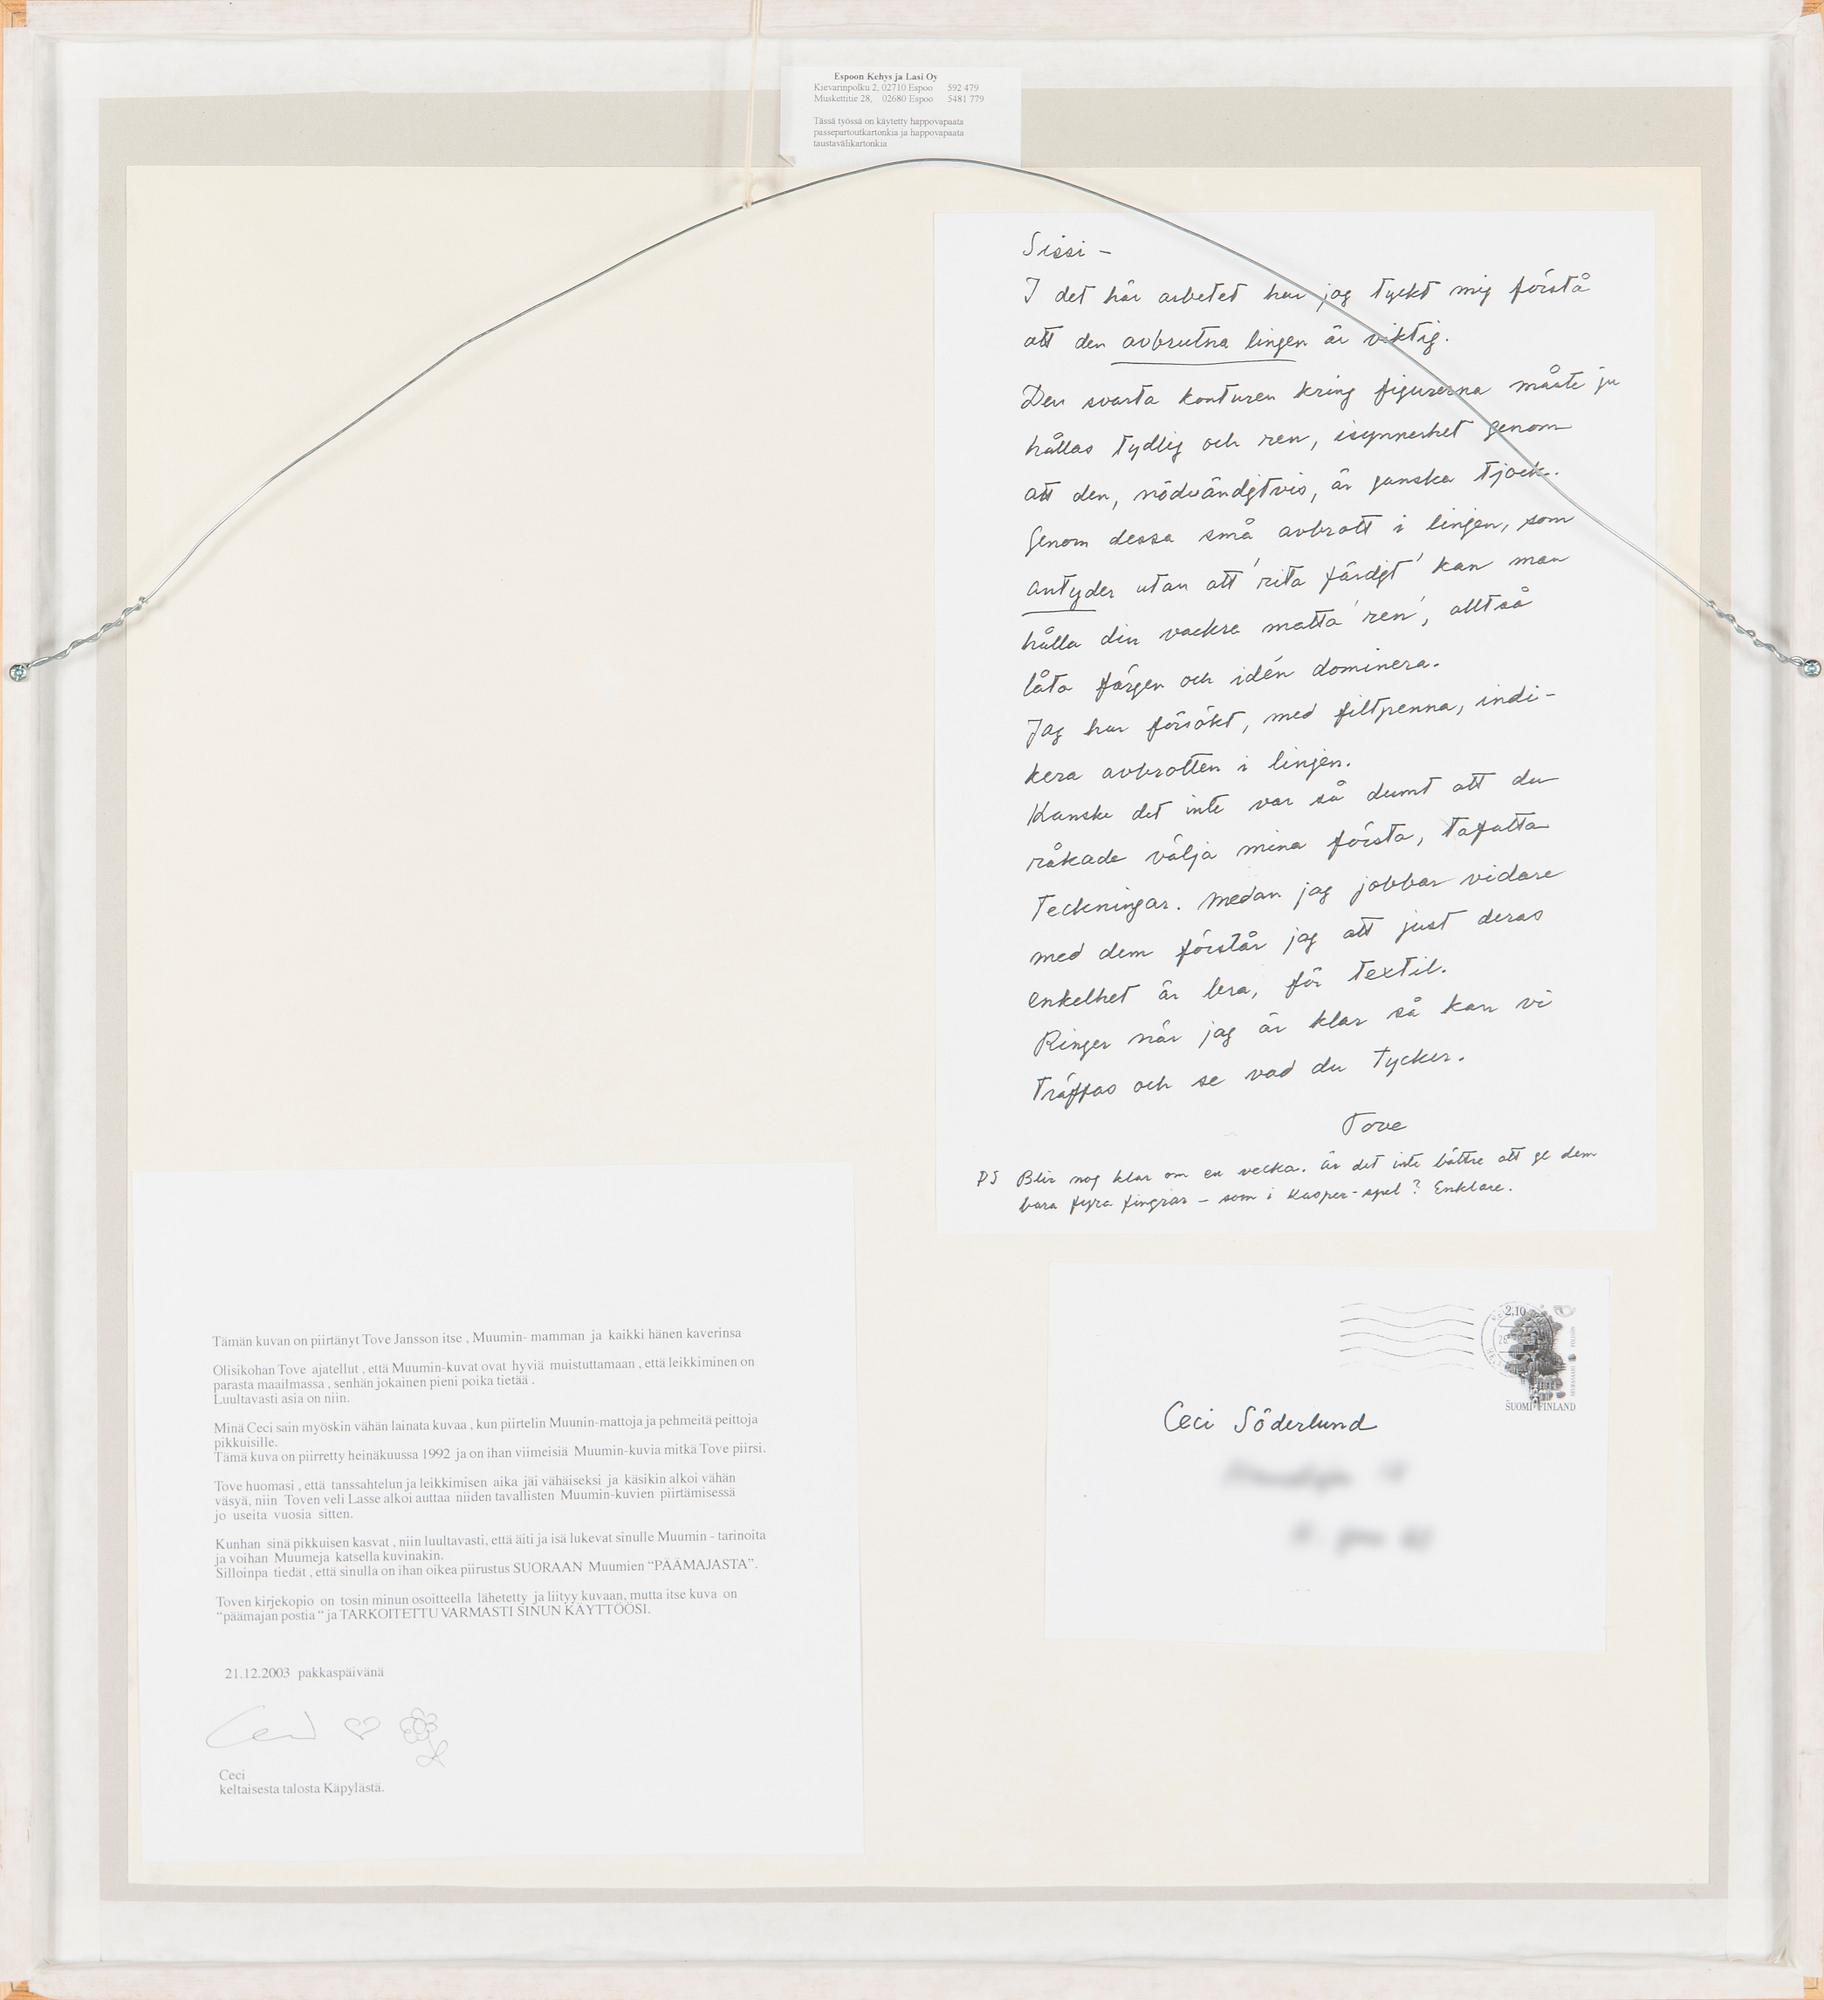 Espoon Kehys ja Lasi Oy
Kievarinpolku 2, 02710 Espoo 592 479
Muskettitie 28, 02680 Espoo 5481 779
Tässä työssä on käytetty happovapaata
passepartoutkartonkia ja happovapaata
taustavälikartonkia
Sissi –
I det här arbetet har jag tyckt mig förstå
att den avbrutna lingen är viktig.
Den svarta konturen kring figurerna måste ju
hållas tydlig och ren, isynnerhet genom
att den, nödvändgtvis, är ganska tjock.
Genom dessa små avbrott i linjen, som
antyder utan att 'rita färdgt' kan man
hålla din vackra matta 'ren', alltså
låta färgen och idén dominera.
Jag har försökt, med filtpenna, indi-
kera avbrotten i linjen.
Kanske det inte var så dumt att du
råkade välja mina första, tafatta
teckningar. Medan jag jobbar vidare
med dem förstår jag att just deras
enkelhet är bra, för textil.
Ringer när jag är klar så kan vi
träffas och se vad du tycker.
Tove
PS Blir nog klar om en vecka. Är det inte bättre att ge dem
bara fyra fingrar – som i Kasper-spel? Enklare.
2,10
SUOMI FINLAND
Ceci Söderlund
Tämän kuvan on piirtänyt Tove Jansson itse , Muumin- mamman ja kaikki hänen kaverinsa
Olisikohan Tove ajatellut , että Muumin-kuvat ovat hyviä muistuttamaan , että leikkiminen on
parasta maailmassa , senhän jokainen pieni poika tietää .
Luultavasti asia on niin.
Minä Ceci sain myöskin vähän lainata kuvaa , kun piirtelin Muunin-mattoja ja pehmeitä peittoja
pikkuisille.
Tämä kuva on piirretty heinäkuussa 1992 ja on ihan viimeisiä Muumin-kuvia mitkä Tove piirsi.
Tove huomasi , että tanssahtelun ja leikkimisen aika jäi vähäiseksi ja käsikin alkoi vähän
väsyä, niin Toven veli Lasse alkoi auttaa niiden tavallisten Muumin-kuvien piirtämisessä
jo useita vuosia sitten.
Kunhan sinä pikkuisen kasvat , niin luultavasti, että äiti ja isä lukevat sinulle Muumin - tarinoita
ja voihan Muumeja katsella kuvinakin.
Silloinpa tiedät , että sinulla on ihan oikea piirustus SUORAAN Muumien “PÄÄMAJASTA”.
Toven kirjekopio on tosin minun osoitteella lähetetty ja liityy kuvaan, mutta itse kuva on
“päämajan postia “ ja TARKOITETTU VARMASTI SINUN KÄYTTÖÖSI.
21.12.2003 pakkaspäivänä
Ceci
Ceci
keltaisesta talosta Käpylästä.